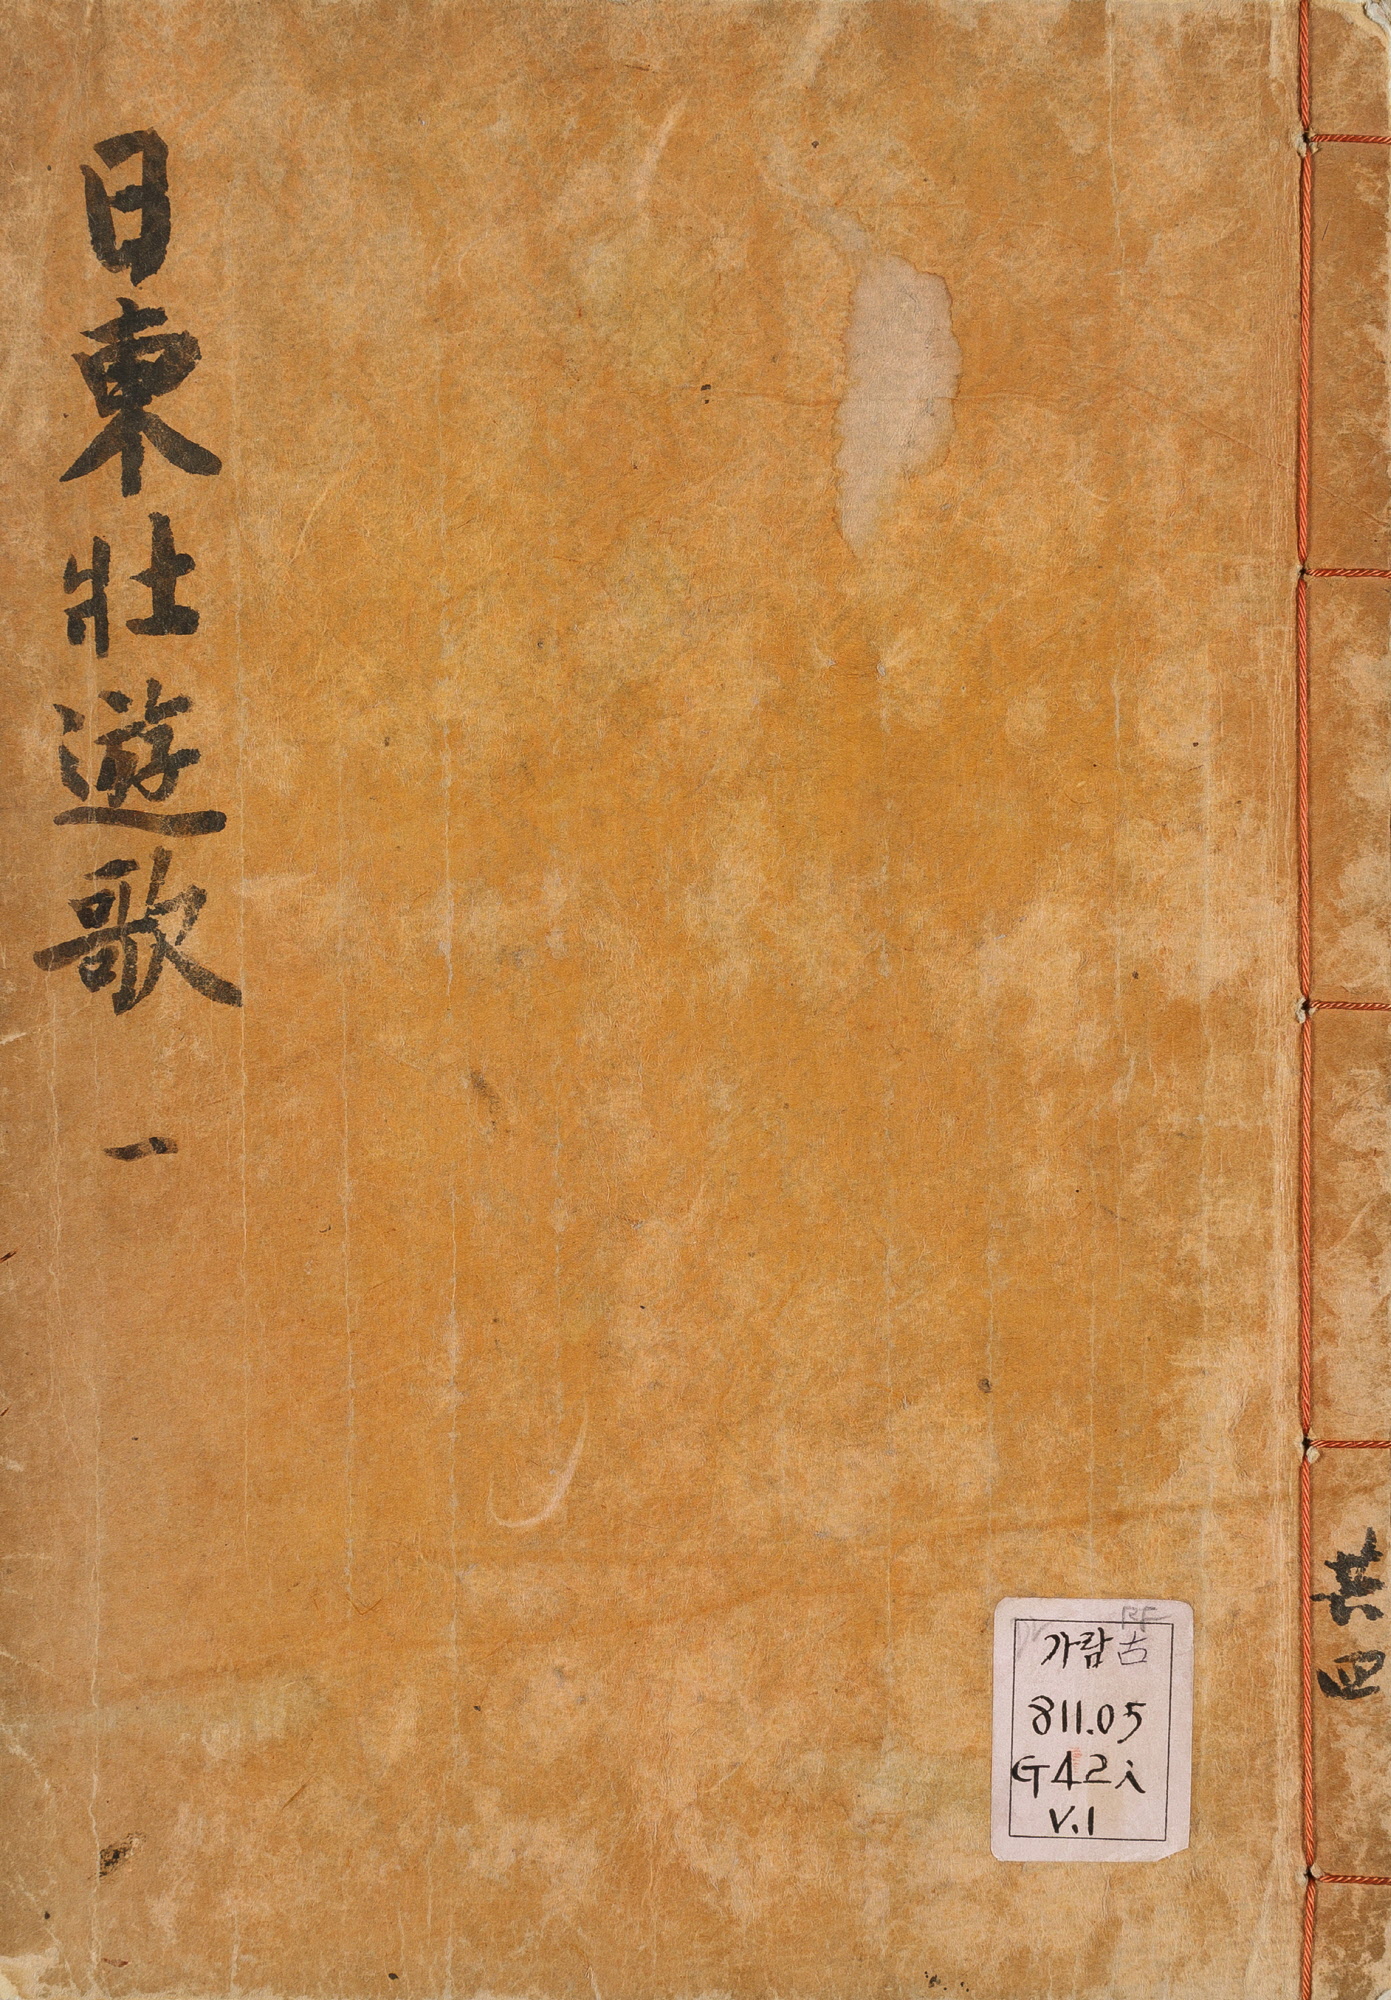 日東壯遊歌 一
共四
RF
가람古
811.05
G42i
V.1